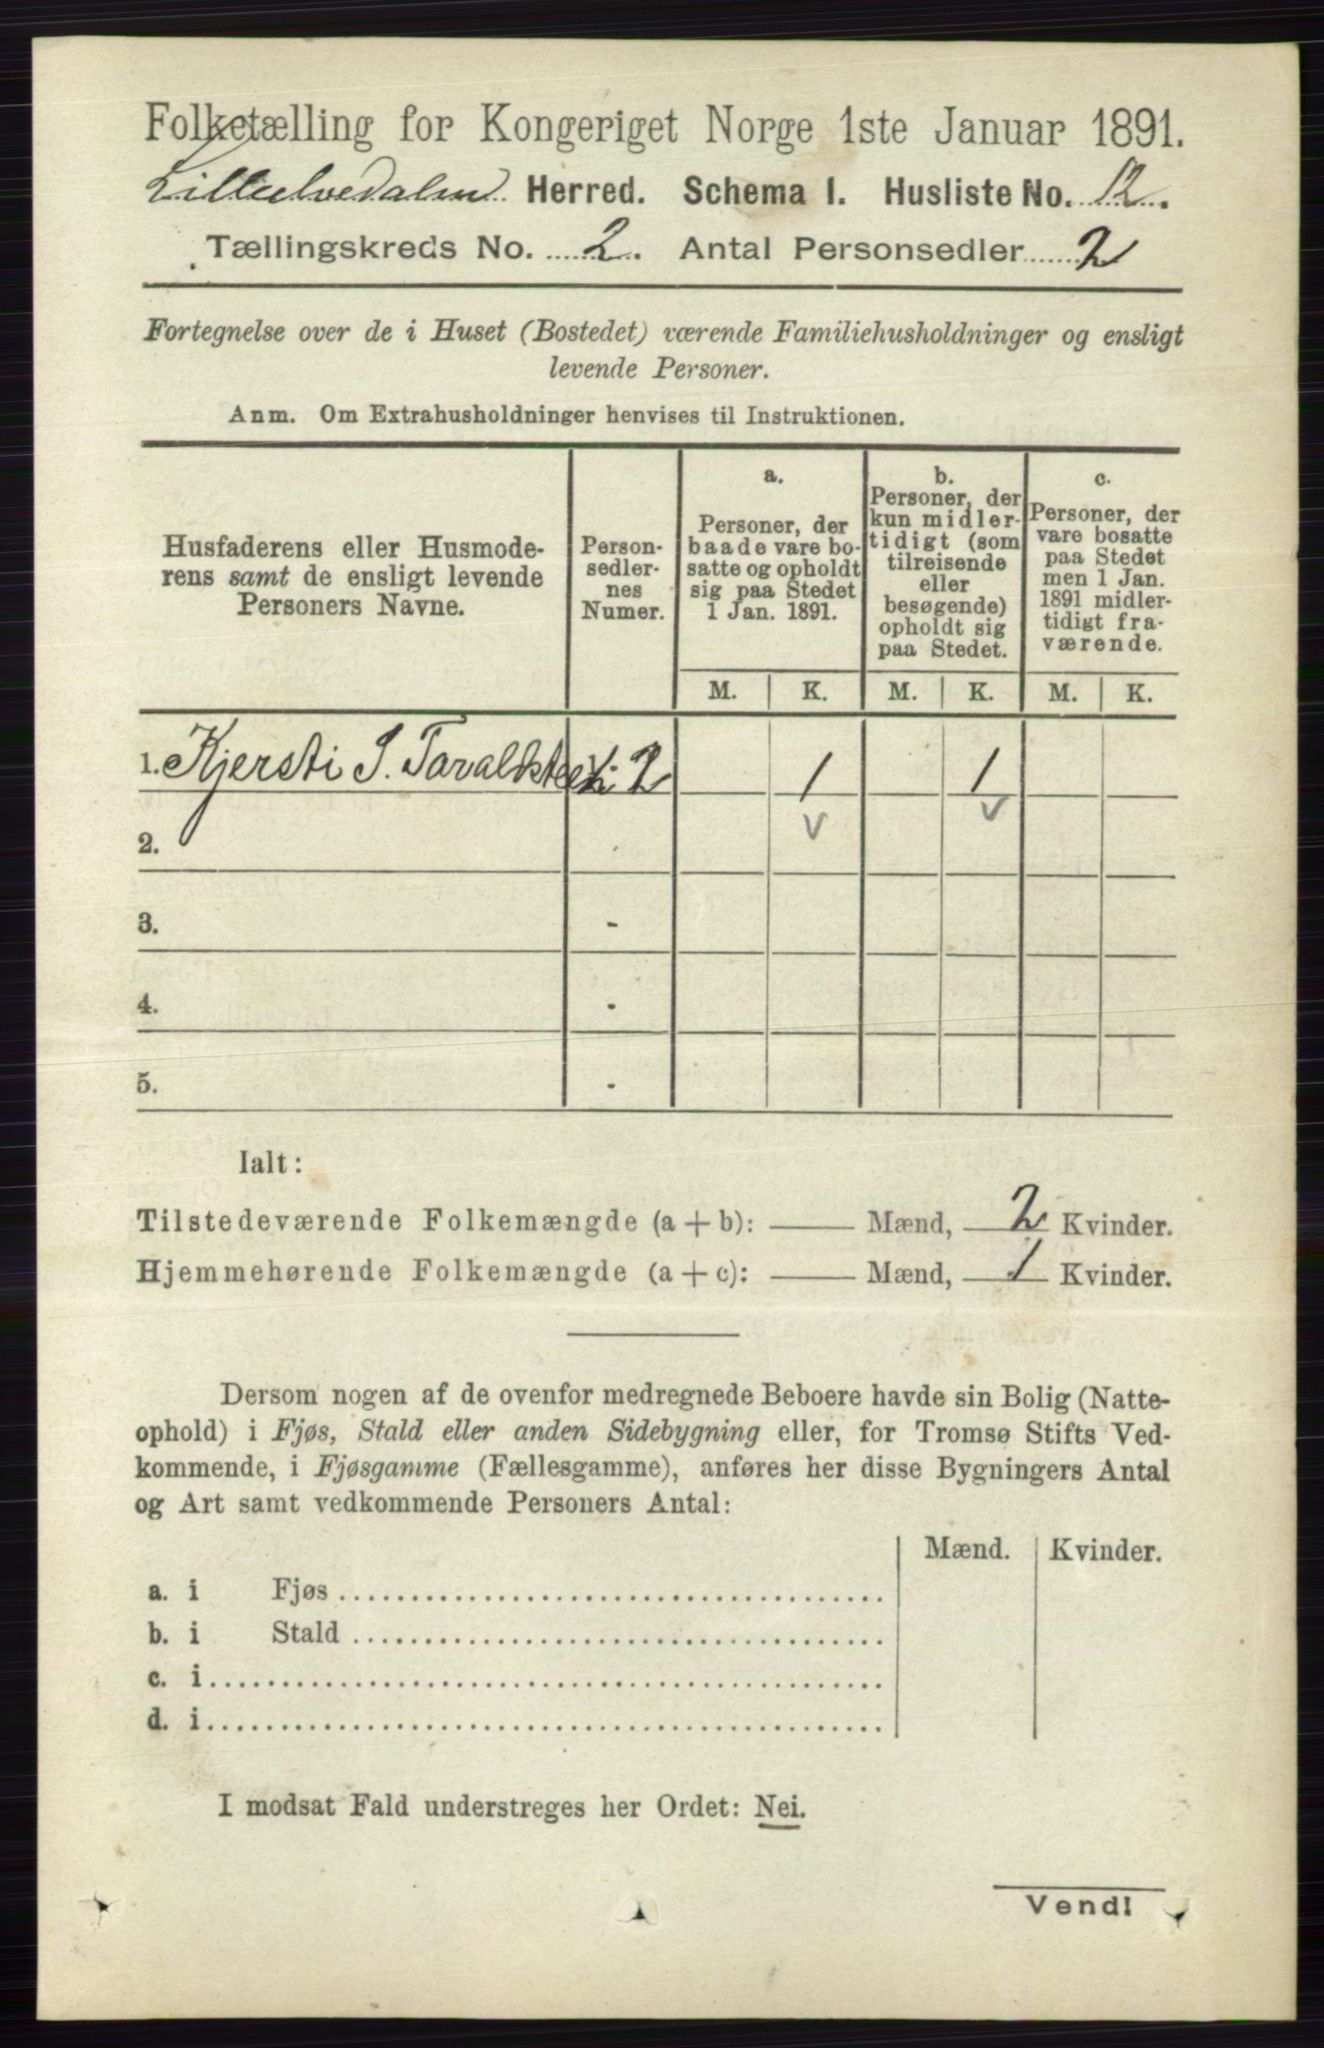 Folketælling for Kongeriget Norge 1ste Januar 1891.
Lilleelvedalen Herred. Schema I. Husliste No. 12.
Tællingskreds No. 2. Antal Personsedler 2
Fortegnelse over de i Huset (Bostedet) værende Familiehusholdninger og ensligt
levende Personer.
Anm. Om Extrahusholdninger henvises til Instruktionen.
Husfaderens eller Husmode-
rens samt de ensligt levende
Personers Navne.
Person-
sedler-
nes
Numer.
a.
Personer, der
baade vare bo-
satte og opholdt
sig paa Stedet
1 Jan. 1891.
b.
Personer, der
kun midler-
tidigt (som
tilreisende
eller
besøgende)
opholdt sig
paa Stedet.
c.
Personer, der
vare bosatte
paa Stedet
men 1 Jan.
1891 midler-
tidigt fra-
værende.
M. K. M. K. M. K.
1. Kjersti 2 1 1
2.
3. -
4. -
5. -
Ialt:
Tilstedeværende Folkemængde (a + b): — Mænd, 2 Kvinder.
Hjemmehørende Folkemængde (a + c): — Mænd, 1 Kvinder.
Dersom nogen af de ovenfor medregnede Beboere havde sin Bolig (Natte-
ophold) i Fjøs, Stald eller anden Sidebygning eller, for Tromsø Stifts Ved-
kommende, i Fjøsgamme (Fællesgamme), anføres her disse Bygningers Antal
og Art samt vedkommende Personers Antal:
Mænd. Kvinder.
a. i Fjøs
b. i Stald
c. i
d. i
I modsat Fald understreges her Ordet: Nei.
Vend!